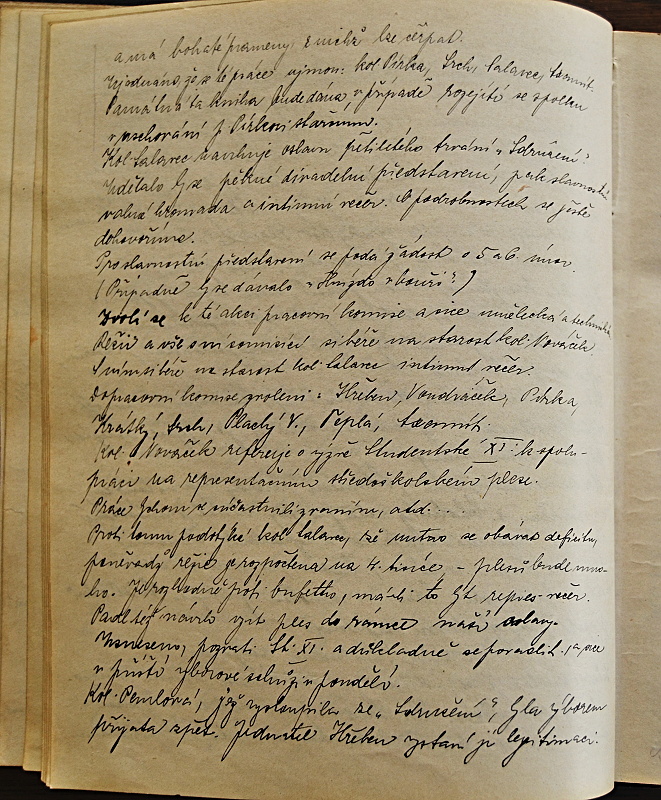 a má bohaté prameny z nichž lze čerpat.
Vyjednáno že se té práce ujmou: kol. Pirka, Srch, Salavec,
Památná ta kniha bude dána v případě rozejití se spolku
v uschování p. Pirkovi starším.
Kol. Salavec navrhuje oslavu pětiletého trvání „Sdružení".
Udělalo by se pěkné divadelní představení, pak slavnostní
valná hromada a intimní večer. O podrobnostech se ještě
dohovoříme.
Pro slavnostní představení se podá žádost o 5 a 6. únor.
(Případně by se dávalo „Hnízdo v bouři"?)
Zvolí se k té akci pracovní komise a sice umělecká a technická
Režii a vše s ní souvisící si béře na starost kol. Nováček.
S ním si béře na starost kol. Salavec intimní večer.
Do pracovní komise zvoleni: Hřeben, Vondráček, Pirka,
Krátký, Srch, Plachý V., Teplá,
Kol. Nováček referuje o výzvě Studentské XI. k spolu-
práci na representačním středoškolském plese.
Práce bychom se súčastnili zvaním, atd. . . .
Proti tomu podotýká kol. Salavec, že nutno se obávat deficitu,
poněvadž režie je rozpočtena na 4. tisíce – plesů bude mno-
ho. Je rozhodně proti bufettu, má-li to být repres. večer.
Padl též návrh vzít ples do rámce naší oslavy.
Usneseno, pozvati St. XI. a důkladně se poradit, a sice
v příští výborové schůzi v pondělí.
Kol. Pemlová, jež vystoupila ze „Sdružení", byla výborem
přijata zpět. Jednatel Hřeben vystaví jí legitimaci.